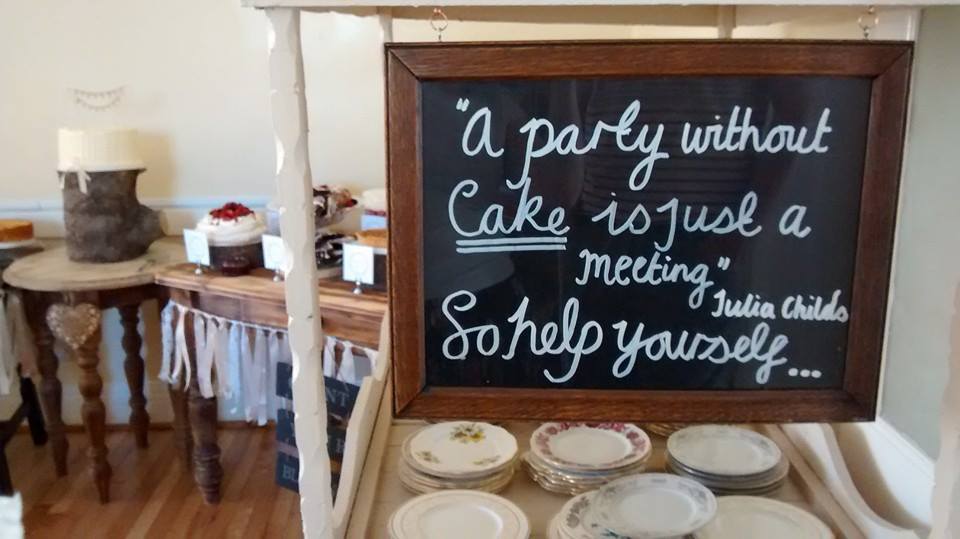 "A party without
Cake is just a
meeting"
Julia Childs
So help yourself...